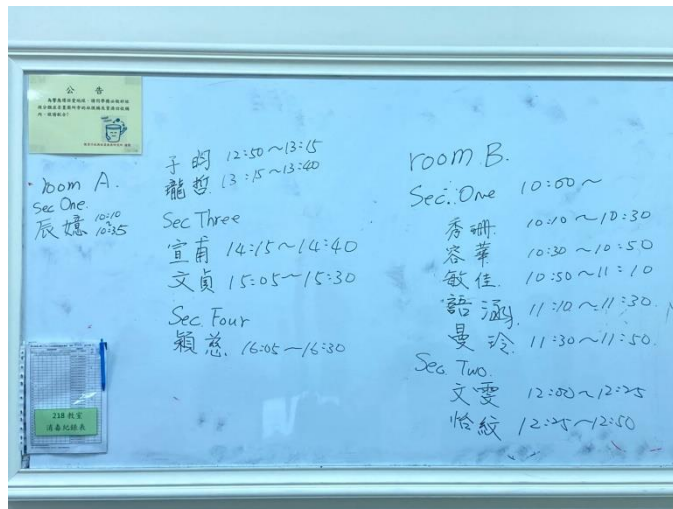 公告
room A.
Sec One.
辰嬑 10:10~10:35
子昀 12:50~13:15
龍哲 13:15~13:40
Sec Three
宣甫 14:15~14:40
文貞 15:05~15:30
Sec. Four
穎慈 16:05~16:30
room B.
Sec. One 10:00~
秀珊 10:10~10:30
容華 10:30~10:50
敏佳 10:50~11:10
語涵 11:10~11:30
曼泠 11:30~11:50
Sec. Two
文雯 12:00~12:25
怡紋 12:25~12:50
218 教室
消毒紀錄表